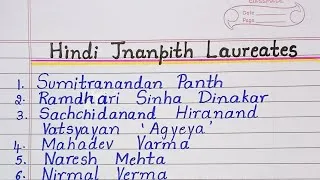 Date
Page
Hindi Jnanpith Laureates
1. Sumitranandan Panth
2. Ramdhari Sinha Dinakar
3. Sachchidanand Hiranand
Vatsyayan 'Agyeya'
4. Mahadev Varma
5. Naresh Mehta
6. Nirmal Verma